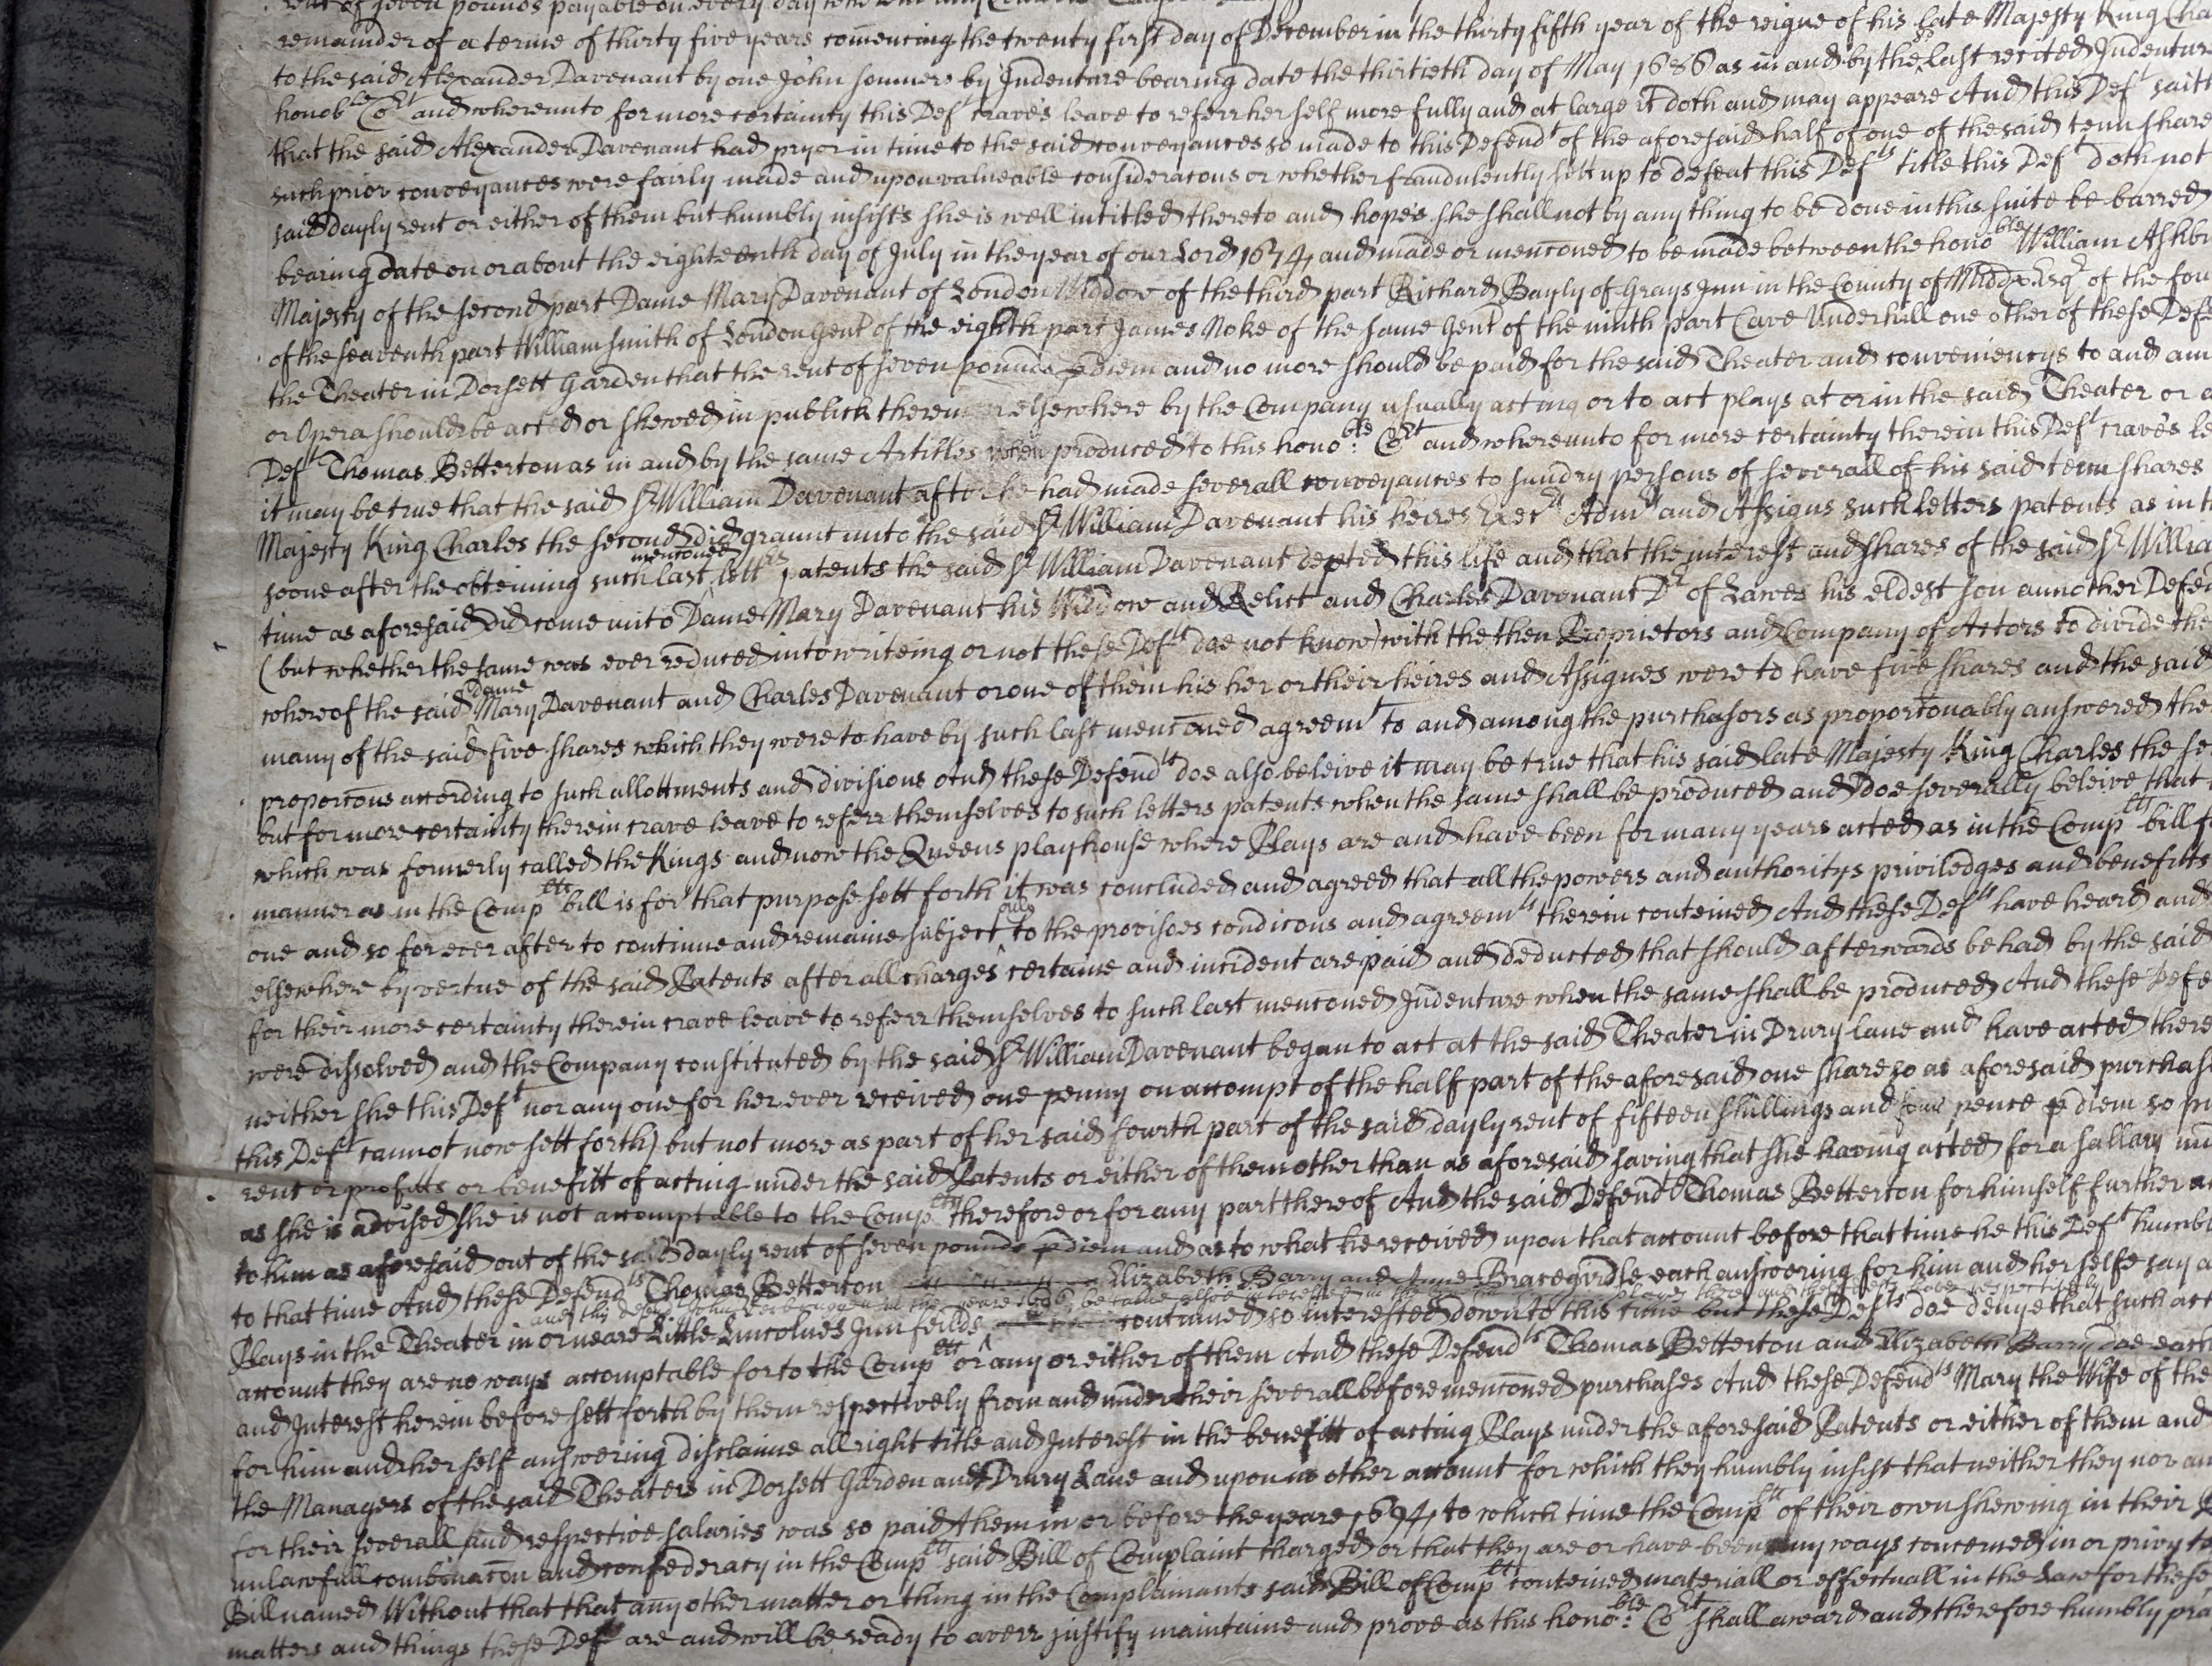 rent of seven pounds payable on every day
remainder of a terme of thirty five years com̄encing the twenty first day of December in the thirty fifth year of the reigne of his late Majesty King Cha
to the said Alexander Davenant by one John Somners by Indenture bearing date the thirtieth day of May 1686 as in and by the last recited Indenture
honoble Cort and whereunto for more certainty this Deft craves leave to referr her self more fully and at large it doth and may appeare And this Deft saith
that the said Alexander Davenant had pryor in time to the said conveyances so made to this Defendt of the aforesaid half of one of the said tenn share
such prior conveyances were fairly made and upon valueable consideracons or whether fraudulently sett up to defeat this Defts title this Deft doth not
said dayly rent or either of them but humbly insists she is well intitled thereto and hopes she shall not by any thing to be done in this suite be barred
bearing date on or about the eighteenth day of July in the year of our Lord 1674 and made or menc̄oned to be made between the honoble William Ashbu
Majesty of the second part Dame Mary Davenant of London Widdow of the third part Richard Bayly of Grays Inn in the County of Middx Esqr of the fou
of the seaventh part William Smith of London Gent of the eighth part James Noke of the same Gent of the ninth part Cave Underhill one other of these Defe
the Theater in Dorsett Garden that the rent of seven pounds p diem and no more should be paid for the said Theater and conveniencys to and am
or Opera should be acted or shewed in publick therein or elsewhere by the Company usually acting or to act plays at or in the said Theater or
Deft Thomas Betterton as in and by the same Articles when produced to this honoble: Cort and whereunto for more certainty therein this Deft craves le
it may be true that the said Sr William Davenant after he had made severall conveyances to sundry persons of severall of his said tenn shares
Majesty King Charles the second did graunt unto the said Sr William Davenant his heires Execrs Admrs and Assigns such letters patents as in th
soone after the obteining such last menc̄oned letters patents the said Sr William Davenant depted this life and that the interest and shares of the said Sr Willia
time as aforesaid did come unto Dame Mary Davenant his Widdow and Relict and Charles Davenant Dr of Lawes his eldest son annother Defen
(but whether the same was ever reduced into writeing or not these Defts doe not know) with the then Proprietors and Company of Actors to divide the
whereof the said dame Mary Davenant and Charles Davenant or one of them his her or their heires and Assignes were to have five shares and the said
many of the said five shares which they were to have by such last menc̄oned agreemt to and among the purchasors as proporc̄onably answered the
proporc̄ons according to such allottments and divisions And these Defendts doe also beleive it may be true that his said late Majesty King Charles the se
but for more certainty therein crave leave to referr themselves to such letters patents when the same shall be produced and doe severally beleive that
which was formerly called the Kings and now the Queens playhouse where Plays are and have been for many years acted as in the Complts bill f
manner as in the Complts bill is for that purpose sett forth it was concluded and agreed that all the powers and authoritys priviledges and benefitts
one and so for ever after to continue and remaine subject to the provisoes condic̄ons and agreemts therein conteined And these Defts have heard and
elsewhere by vertue of the said Patents after all charges certaine and incident are paid and deducted that should afterwards be had by the said
for their more certainty therein crave leave to referr themselves to such last menc̄oned Indenture when the same shall be produced And these Defe
were dissolved and the Company constituted by the said Sr William Davenant began to act at the said Theater in Drury Lane and have acted there
neither she this Deft nor any one for her ever received one penny on accompt of the half part of the aforesaid one share so as aforesaid purchas
this Deft cannot now sett forth) but not more as part of her said fourth part of the said dayly rent of fifteen shillings and four pence p diem so pu
rent or profitts or benefitt of acting under the said Patents or either of them other than as aforesaid saving that she having acted for a sallary
as she is advised she is not accomptable to the Complts therefore or for any part thereof And the said Defendt Thomas Betterton for himself further
to him as aforesaid out of the said dayly rent of seven pounds p diem and as to what he received upon that account before that time he this Deft humbl
to that time And these Defendts Thomas Betterton Elizabeth Barry and Anne Bracegirdle each answering for him and her selfe say
Plays in the Theater in or neare Little Lincolnes Inn feilds continued so interested down to this time but these Defts doe denye that such act
account they are no ways accomptable for to the Complts or any or either of them And these Defendts Thomas Betterton and Elizabeth Barry doe each
and Interest herein before sett forth by them respectively from and under their severall before menc̄oned purchases And these Defendts Mary the Wife of the
for him and her self answering disclaime all right title and Interest in the benefitt of acting Plays under the aforesaid Patents or either of them and
the Managers of the said Theaters in Dorsett Garden and Drury Lane and upon no other account for which they humbly insist that neither they nor
for their severall and respective salaries was so paid them in or before the yeare 1694 to which time the Complts of their own shewing in their
unlawfull combinac̄on and confederacy in the Complts said Bill of Complaint charged or that they are or have been any ways concerned in or privy to
Bill named Without that that any other matter or thing in the Complainants said Bill of Complt conteined materiall or effectuall in the Law for these
matters and things these Defts are and will be ready to averr justify maintaine and prove as this honoble: Cort shall award and therefore humbly pra